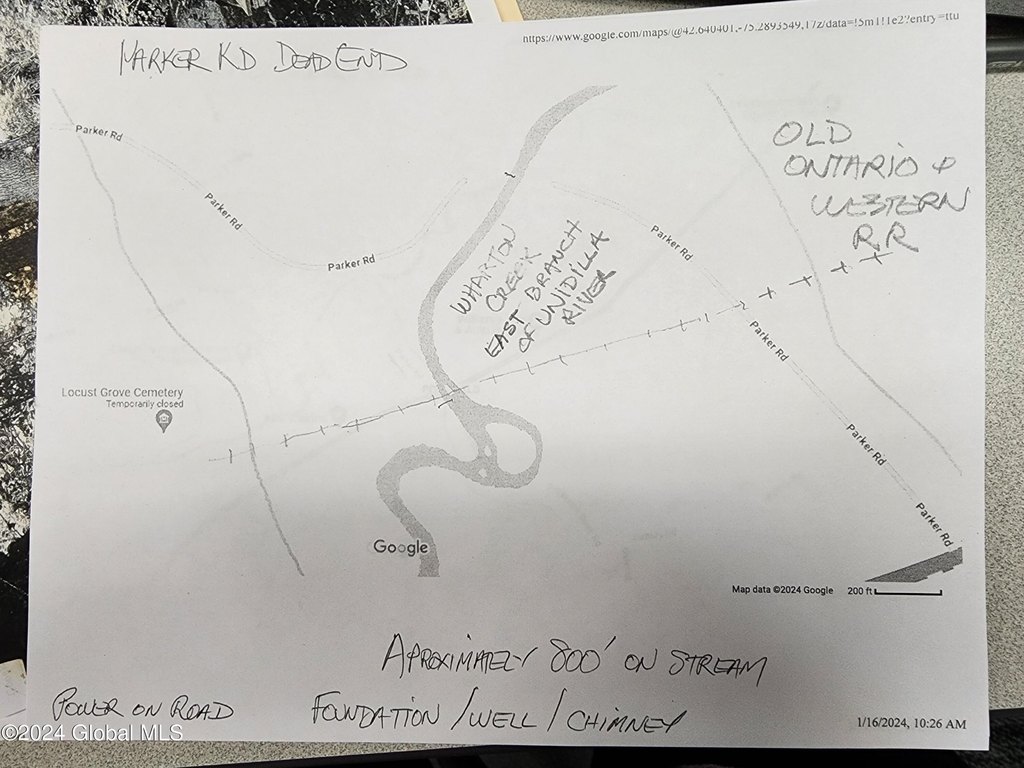 https://www.google.com/maps/@42.640401,-75.2893549,17z/data=!5m1!1e2?entry=ttu
PARKER RD DEAD END
Parker Rd
Parker Rd
Parker Rd
Parker Rd
Parker Rd
Parker Rd
Parker Rd
OLD
ONTARIO &
WESTERN
RR
WHARTON
CREEK
EAST BRANCH
OF UNIDILLA
RIVER
Locust Grove Cemetery
Temporarily closed
Google
Map data ©2024 Google 200 ft
APROXIMATELY 800' ON STREAM
POWER ON ROAD FOUNDATION / WELL / CHIMNEY
1/16/2024, 10:26 AM
©2024 Global MLS